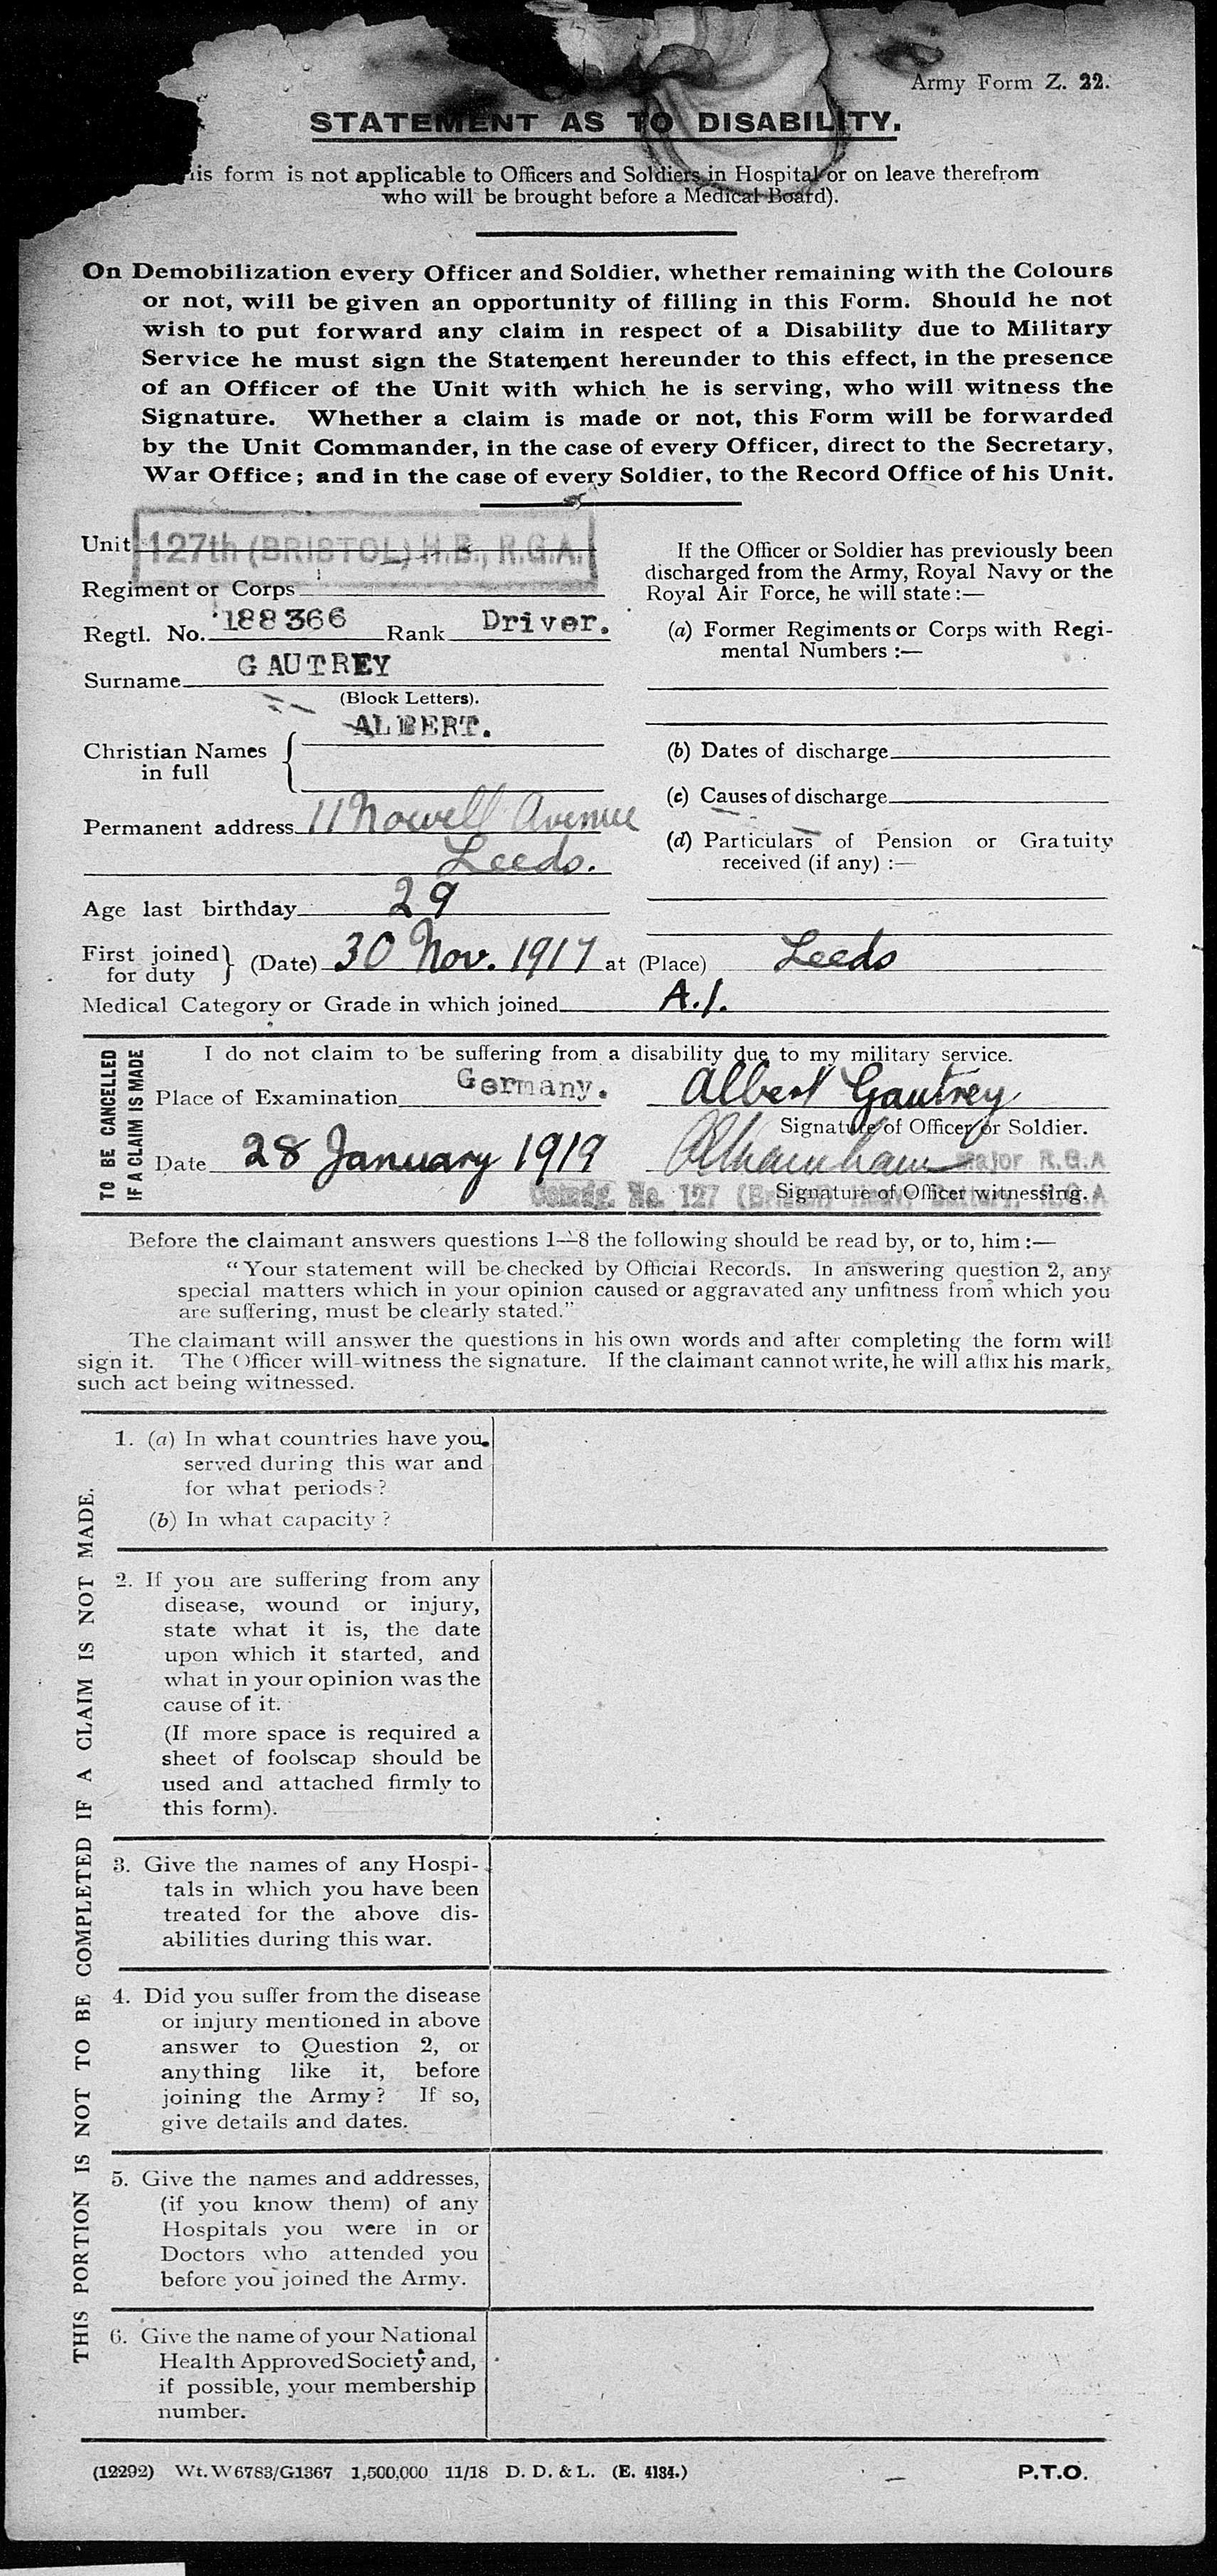 Army Form Z. 22.
STATEMENT AS TO DISABILITY.
is form is not applicable to Officers and Soldiers in Hospital or on leave therefrom
who will be brought before a Medical Board).
On Demobilization every Officer and Soldier, whether remaining with the Colours
or not, will be given an opportunity of filling in this Form. Should he not
wish to put forward any claim in respect of a Disability due to Military
Service he must sign the Statement hereunder to this effect, in the presence
of an Officer of the Unit with which he is serving, who will witness the
Signature. Whether a claim is made or not, this Form will be forwarded
by the Unit Commander, in the case of every Officer, direct to the Secretary,
War Office; and in the case of every Soldier, to the Record Office of his Unit.
Unit 127th (BRISTOL) H.B., R.G.A.
Regiment or Corps
Regtl. No. 188366 Rank Driver.
Surname GAUTREY
(Block Letters).
Christian Names in full ALBERT.
Permanent address 11 Nowell Avenue
Leeds.
Age last birthday 29
If the Officer or Soldier has previously been
discharged from the Army, Royal Navy or the
Royal Air Force, he will state:—
(a) Former Regiments or Corps with Regi-
mental Numbers :—
(b) Dates of discharge
(c) Causes of discharge
(d) Particulars of Pension or Gratuity
received (if any) :—
First joined for duty } (Date) 30 Nov. 1917 at (Place) Leeds
Medical Category or Grade in which joined A.1.
TO BE CANCELLED
IF A CLAIM IS MADE
I do not claim to be suffering from a disability due to my military service.
Place of Examination Germany. Albert Gautrey
Signature of Officer or Soldier.
Date 28 January 1919 Major R.G.A
Comdg. No. 127 (Bristol) Heavy Battery, R.G.A
Signature of Officer witnessing.
Before the claimant answers questions 1—8 the following should be read by, or to, him :—
"Your statement will be checked by Official Records. In answering question 2, any
special matters which in your opinion caused or aggravated any unfitness from which you
are suffering, must be clearly stated."
The claimant will answer the questions in his own words and after completing the form will
sign it. The Officer will witness the signature. If the claimant cannot write, he will affix his mark,
such act being witnessed.
THIS PORTION IS NOT TO BE COMPLETED IF A CLAIM IS NOT MADE.
1. (a) In what countries have you
served during this war and
for what periods ?
(b) In what capacity ?
2. If you are suffering from any
disease, wound or injury,
state what it is, the date
upon which it started, and
what in your opinion was the
cause of it.
(If more space is required a
sheet of foolscap should be
used and attached firmly to
this form).
3. Give the names of any Hospi-
tals in which you have been
treated for the above dis-
abilities during this war.
4. Did you suffer from the disease
or injury mentioned in above
answer to Question 2, or
anything like it, before
joining the Army ? If so,
give details and dates.
5. Give the names and addresses,
(if you know them) of any
Hospitals you were in or
Doctors who attended you
before you joined the Army.
6. Give the name of your National
Health Approved Society and,
if possible, your membership
number.
(12292) Wt. W6783/G1367 1,500,000 11/18 D. D. & L. (E. 4134.)
P.T.O.